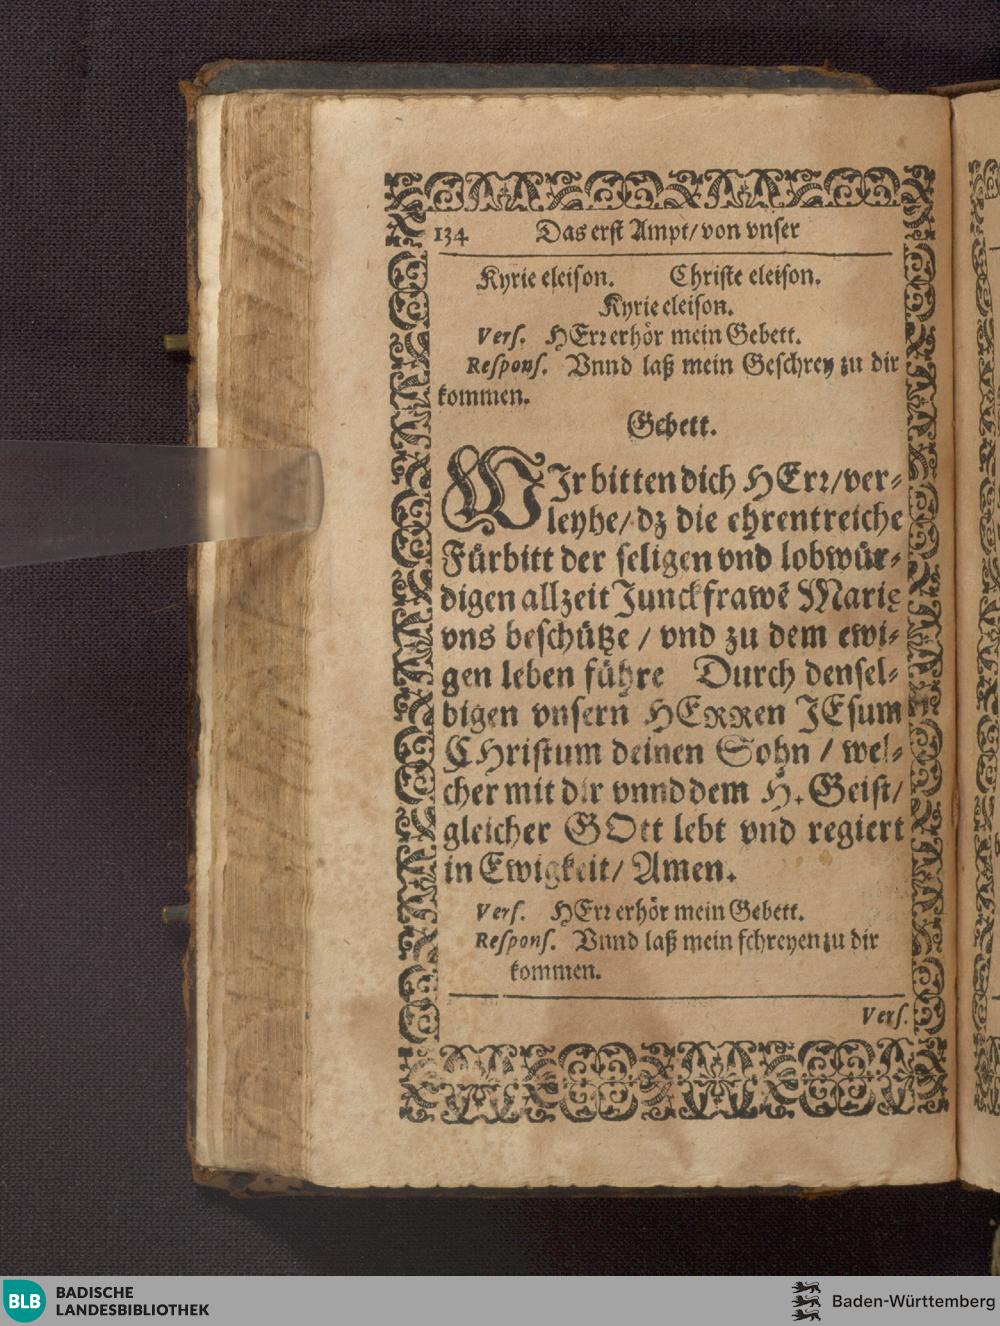 134 Das erst Ampt/ von vnser
Kyrie eleison. Christe eleison.
Kyrie eleison.
Vers. HErr erhör mein Gebett.
Respons. Vnnd laß mein Geschrey zu dir
kommen.
Gebett.
WIr bitten dich HErr/ ver-
leyhe/ dz die ehrentreiche
Fürbitt der seligen vnd lobwür-
digen allzeit Junckfrawẽ Marie
vns beschütze / vnd zu dem ewi-
gen leben führe Durch densel-
bigen vnsern HERRen JEsum
CHristum deinen Sohn / wel-
cher mit dir vnnd dem H. Geist/
gleicher GOtt lebt vnd regiert
in Ewigkeit/ Amen.
Vers. HErr erhör mein Gebett.
Respons. Vnnd laß mein schreyen zu dir
kommen.
Vers.
BLB BADISCHE
LANDESBIBLIOTHEK
Baden-Württemberg